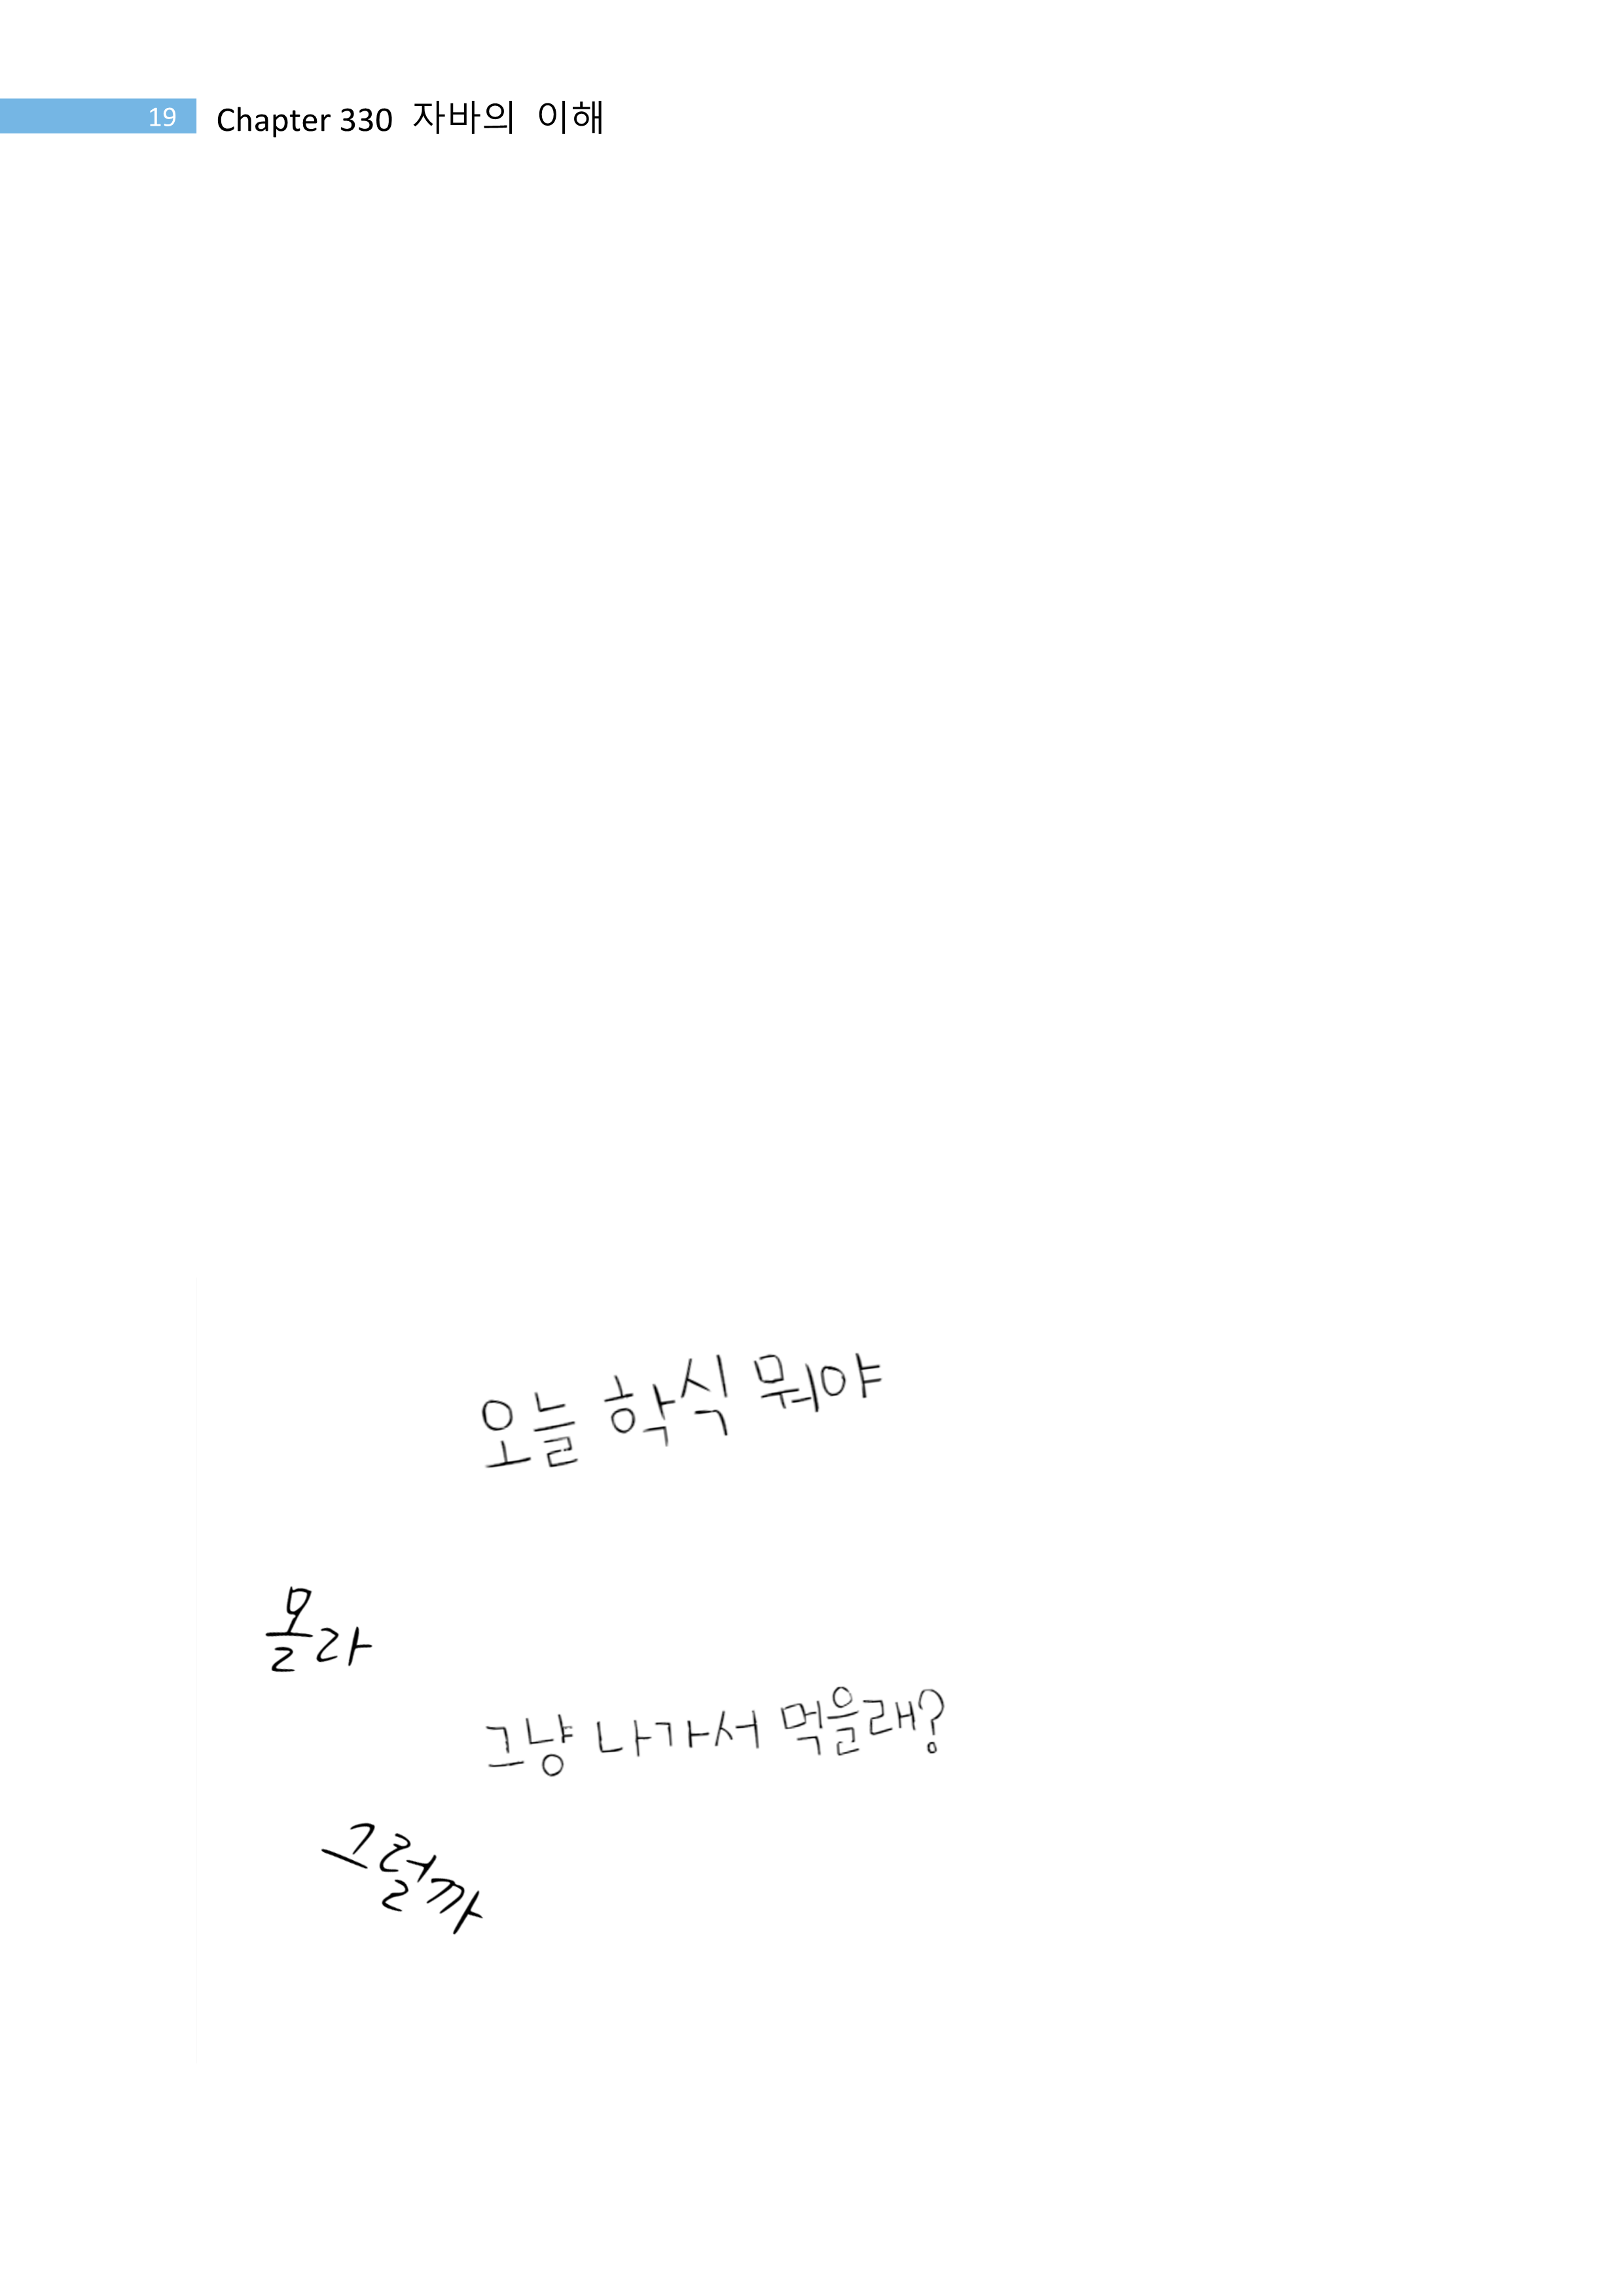 19 Chapter 330 자바의 이해
오늘 학식 뭐야
몰라
그냥 나가서 먹을래?
그럴까